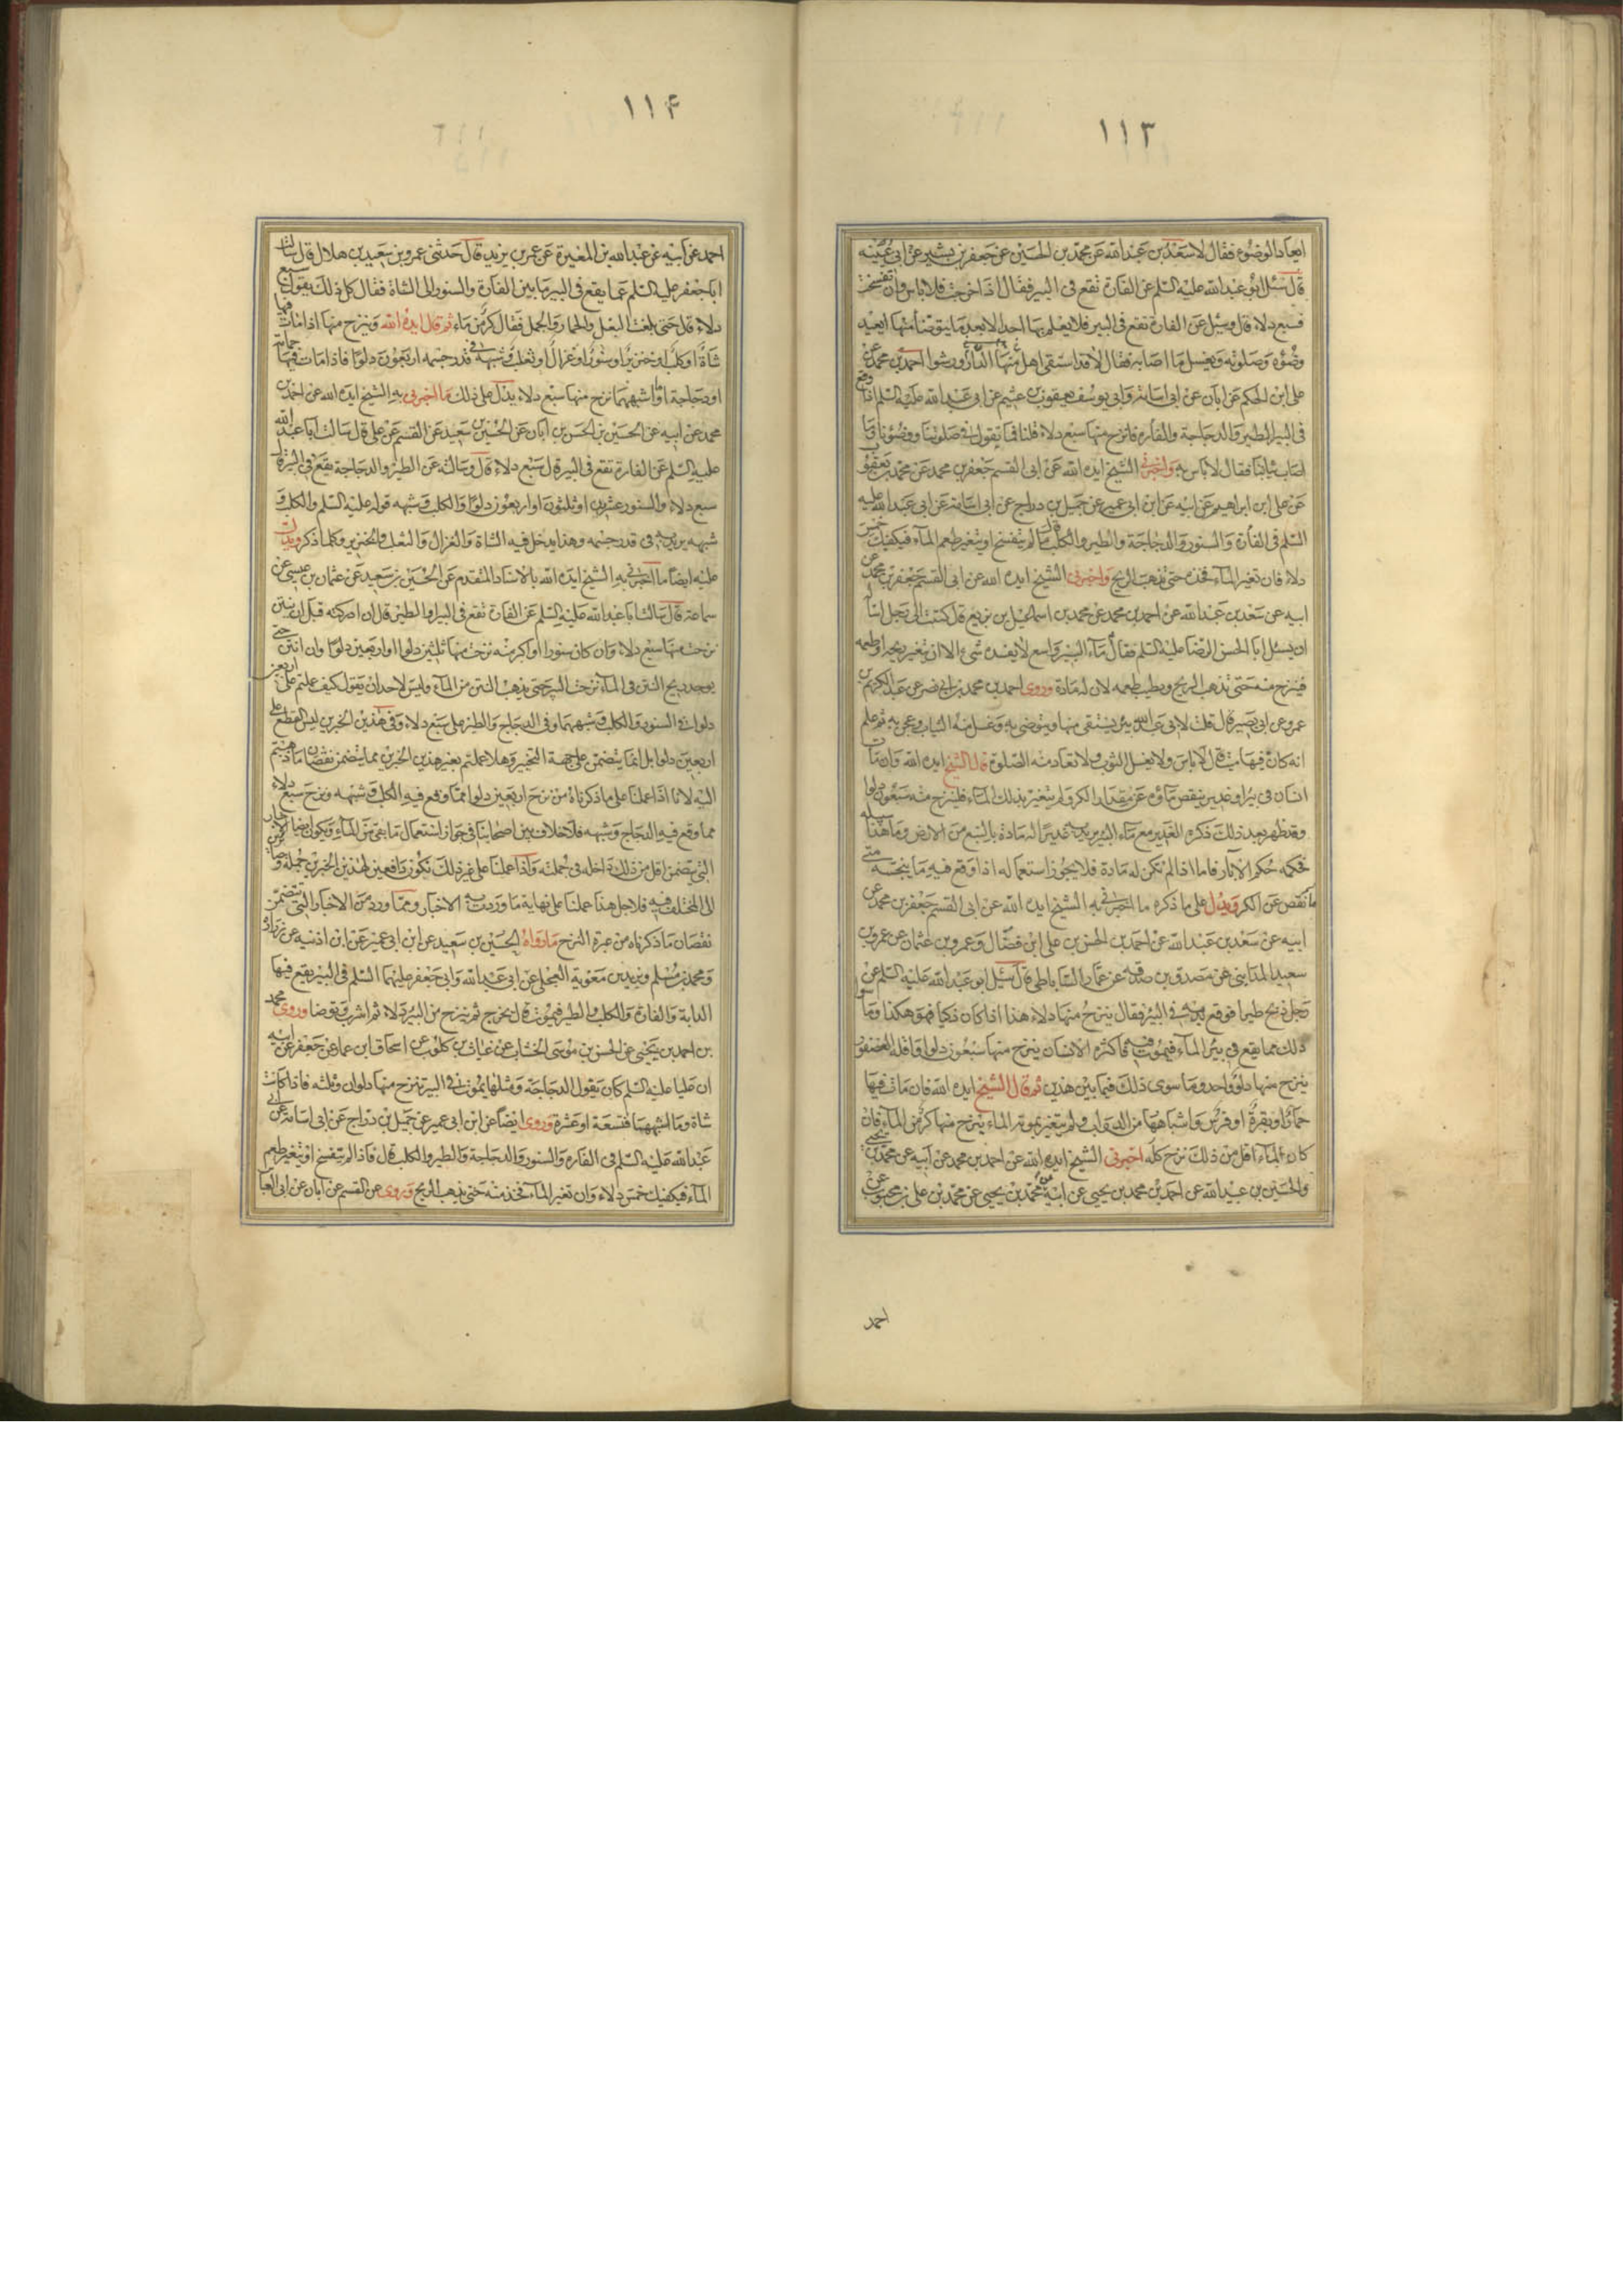 ١١٣
ايعاد الوضوء فقال لا سعد بن عبد الله عن محمد بن الحسين عن جعفر بن بشير عن ابى عيينه
قال سئل ابو عبد الله عليه السلم عن الفارة تقع فى البير فقال اذا خرجت فلا باس وان تفسخت
فسبع دلاء قال وسئل عن الفارة تقع فى البير فلا يعلم بها احد الا بعد ما يتوضأ منها ايعيد
وضوءه وصلوته ويغسل ما اصابه فقال لا قد استقى اهل الدار منها ورشوا احمد بن محمد عن
على ابن الحكم عن ابان عن ابى اسامة وابى يوسف يعقوب بن عثيم عن ابى عبد الله عليه السلم اذا وقع
فى البير الطير والدجاجة والفاره فانزح منها سبع دلاء قلنا فما تقول فى صلوتنا ووضؤنا وما
اصاب ثيابنا فقال لا باس به واخبرنى الشيخ ايده الله عن ابى القسم جعفر بن محمد عن محمد بن يعقوب
عن على ابن ابراهيم عن ابيه عن ابن ابى عمير عن جميل بن دراج عن ابى اسامة عن ابى عبد الله عليه
السلم فى الفأرة والسنور والدجاجة والطير والكلب قال ما لم يتفسخ او يتغير طعم المآء فيكفيك خمس
دلاء فان تغير المآء فخذه حتى يذهب الريح واخبرنى الشيخ ايده الله عن ابى القسم جعفر بن محمد عن
ابيه عن سعد بن عبد الله عن احمد بن محمد عن محمد بن اسماعيل بن بزيع قال كتبت الى رجل اساله
ان يسئل ابا الحسن الرضا عليه السلم فقال مآء البير واسع لا يفسده شىء الا ان يتغير ريحه او طعمه
فينزح منه حتى تذهب الريح ويطيب طعمه لان له مادة وروى احمد بن محمد بن ابى نصر عن عبد الكريم بن
عمرو عن ابى بصير قال قلت لابى عبد الله بير يستقى منها ويتوضى به وغسل منه الثياب وعجن به ثم علم
انه كان فيها ميت قال لا باس ولا يغسل الثوب ولا تعاد منه الصلوة قال الشيخ ايده الله وان مات
انسان فى بئر او غدير ينقص مآؤه عن مقدار الكر ولم يتغير بذلك المآء فلينزح منه سبعون دلوا
وقد ظهر بعد ذلك ذكره الغدير مع مآء البير يريد به غديرا له مادة بالنبع من الارض وما هذا سبيله
فحكمه حكم الآبار فاما اذا لم تكن له مادة فلا يجوز استعماله اذا وقع فيه ما ينجسه متى
ما نقص عن الكر ويدل على ما ذكره ما اخبرنى به الشيخ ايده الله عن ابى القسم جعفر بن محمد عن
ابيه عن سعد بن عبد الله عن احمد بن الحسن بن على ابن فضال وعمرو بن عثمان عن عمرو بن
سعيد المدآينى عن مصدق بن صدقة عن عمار الساباطى قال سئل ابو عبد الله عليه السلم عن
رجل ذبح طيرا فوقع بدمه فى البئر فقال ينزح منها دلاء هذا اذا كان ذكيا فهو هكذا وما سوى
ذلك مما يقع فى بئر المآء فيموت فيه فاكثره الانسان ينزح منها سبعون دلوا واقله العصفور
ينزح منها دلو واحد وما سوى ذلك فيما بين هذين ثم قال الشيخ ايده الله فان مات فيها
حمار او بقرة او فرس واشباهها من الدواب ولم يتغير بموته الماء ينزح منها كر من المآء فان
كان المآء اقل من ذلك نزح كله اخبرنى الشيخ ايده الله عن احمد بن محمد عن ابيه عن محمد بن يحيى
والحسين بن عبيد الله عن احمد بن محمد بن يحيى عن ابيه عن محمد بن يحيى عن محمد بن على بن محبوب عن
احمد
١١۴
احمد عن ابيه عن عبد الله بن المغيرة عن عمر بن يزيد قال حدثنى عمرو بن سعيد بن هلال قال سالت
ابا جعفر عليه السلم عما يقع فى البير ما بين الفأرة والسنور الى الشاة فقال كل ذلك يقول سبع
دلاء قال حتى بلغت البغل والحمار والجمل فقال كر من ماء ثم قال ايده الله وينزح منها اذا ماتت فيها
شاة او كلب او خنزير او سنور او غزال او ثعلب وشبهه فى قدر جسمه اربعون دلوا فاذا مات فيها حمامة
او دجاجة او ما اشبههما نزح منها سبع دلاء يدل على ذلك ما اخبرنى به الشيخ ايده الله عن احمد بن
محمد عن ابيه عن الحسين بن الحسن بن ابان عن الحسين بن سعيد عن القسم عن على قال سالت ابا عبد الله
عليه السلم عن الفارة تقع فى البيرة قال سبع دلاء قال وسالته عن الطير والدجاجة يقع فى البير قال
سبع دلاء والسنور عشرون او ثلثون او اربعون دلوا والكلب وشبهه قوله عليه السلم والكلب و
شبهه يريد به فى قدر جسمه وهذا يدخل فيه الشاة والغزال والثعلب والخنزير وكلما ذكر ويدل
عليه ايضا ما اخبرنى به الشيخ ايده الله بالاسناد المتقدم عن الحسين بن سعيد عن عثمان بن عيسى عن
سماعة قال سالت ابا عبد الله عليه السلم عن الفارة تقع فى البير او الطير قال ان ادركته قبل ان ينتن
نزحت منها سبع دلاء وان كان سنورا او اكبر منه نزحت منها ثلثين دلوا او اربعين دلوا وان انتن حتى
يوجد ريح النتن فى المآء نزحت البير حتى يذهب النتن من المآء وليس لاحد ان يقول كيف عملتم على اربعين
دلوا فى السنور والكلب وشبههما وفى الدجاج والطير على سبع دلاء وفى هذين الخبرين ليس القطع على
اربعين دلوا بل انما يتضمن على جهة التخيير وهلا عملتم بغير هذين الخبرين مما يتضمن نقصان ما ذهبتم
اليه لانا اذا عملنا على ما ذكرناه من نزح اربعين دلوا مما وقع فيه الكلب وشبهه ونزح سبع دلاء
مما وقع فيه الدجاج وشبهه فلا خلاف بين اصحابنا فى جواز استعمال ما بقى من المآء ويكون ايضا الاخبار
التى يتضمن اقل من ذلك داخله فى جملته واذا عملنا على غير ذلك نكون دافعين لهذين الخبرين جملة وصائرين
الى المختلف فيه فلاجل هذا عملنا على نهاية ما وردت به الاخبار ومما ورد من الاخبار التى تتضمن
نقصان ما ذكرناه من عدة النزح ما رواه الحسين بن سعيد عن ابن ابى عمير عن ابن اذنيه عن زرارة
ومحمد بن مسلم وبريد بن معوية العجلى عن ابى عبد الله وابى جعفر عليهما السلم فى البير يقع فيها
الدابة والفارة والكلب والطير فيموت قال يخرج ثم ينزح من البير دلاء ثم اشرب وتوضا وروى محمد
بن احمد بن يحيى عن الحسن بن موسى الخشاب عن غياث بن كلوب عن اسحاق ابن عمار عن جعفر عن ابيه
ان عليا عليه السلم كان يقول الدجاجة ومثلها يموت فى البير ينزح منها دلوان وثلثه فاذا كانت
شاة وما اشبهها فتسعة او عشرة وروى ايضا عن ابن ابى عمير عن جميل بن دراج عن ابى اسامة عن ابى
عبد الله عليه السلم فى الفاره والسنور والدجاجة والطير والكلب قال فاذا لم يتفسخ او يتغير طعم
المآء فيكفيك خمس دلاء وان تغير المآء فخذ منه حتى يذهب الريح وروى عن القسم عن ابان عن ابى العبا